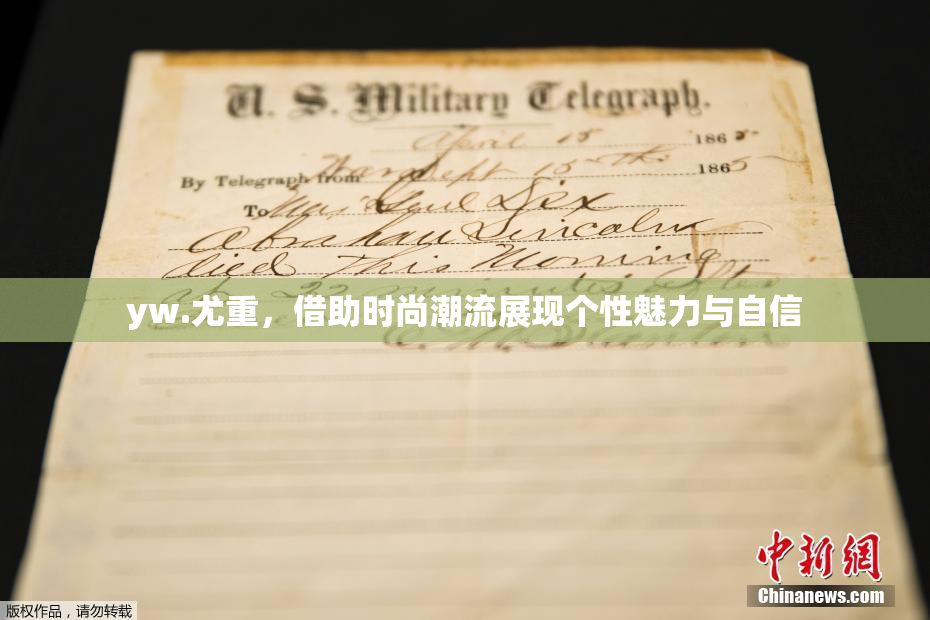 U. S. Military Telegraph.
April 15 1865
By Telegraph from War Dept 15th 1865
To Maj Genl Dix
Abraham Lincoln
died This Morning
at 22 minutes after
yw.尤重，借助时尚潮流展现个性魅力与自信
E. M. Stanton
中新網
Chinanews.com
版权作品，请勿转载